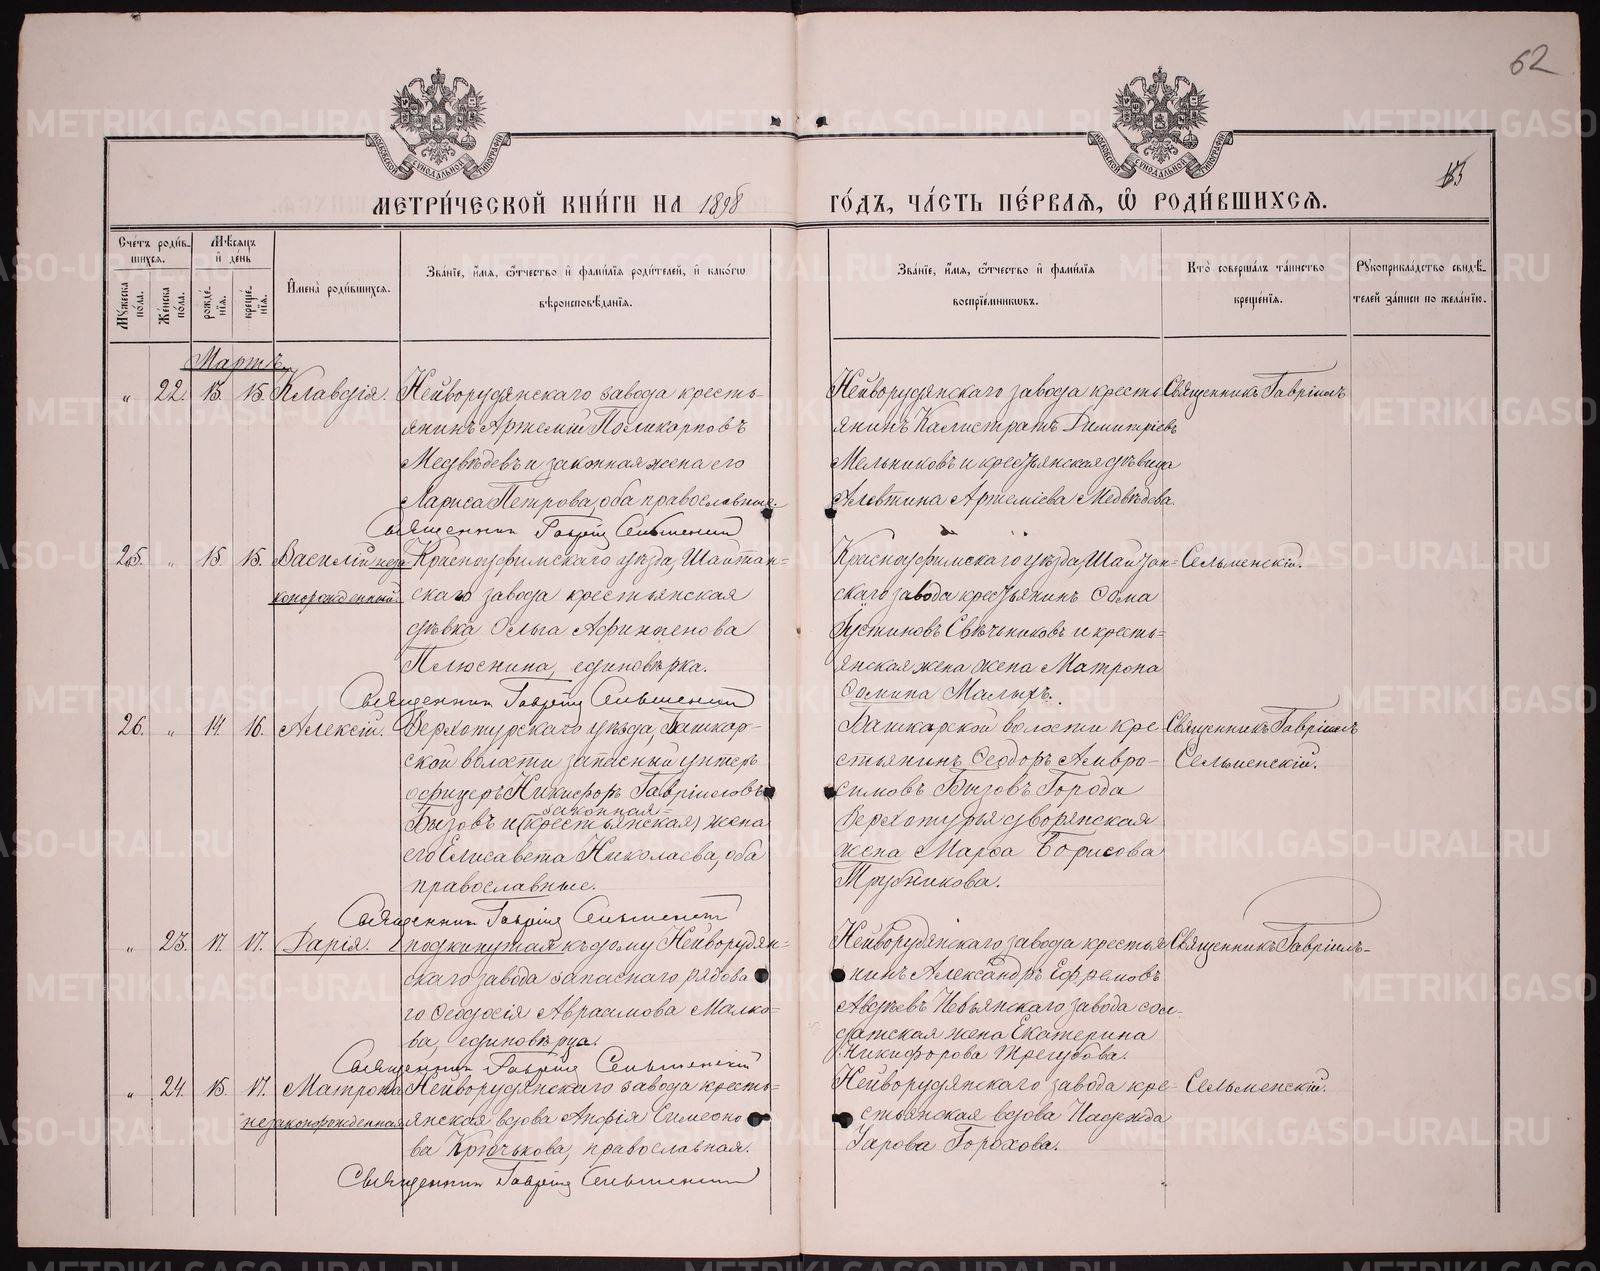 62
МЕТРИ́ЧЕСКОЙ КНИ́ГИ НА 1898 ГО́ДЪ, ЧА́СТЬ ПЕ́РВАѦ, Ѡ҆ РОДИ́ВШИХСѦ.
Сче́тъ роди́вшихся.
Мѣ́сяцъ и҆ де́нь
Мꙋ́жеска по́ла.
Же́нска по́ла.
рожде́нїя.
креще́нїя.
И҆мена̀ роди́вшихся.
Зва́нїе, и҆́мя, ѻ҆́тчество и҆ фами́лїя роди́телей, и҆ како́гѡ
вѣроисповѣ́данїя.
Зва́нїе, и҆́мя, ѻ҆́тчество и҆ фами́лїя
воспрїе́мникѡвъ.
Кто̀ соверша́лъ та́инство
креще́нїя.
Рꙋкоприкла́дство свидѣ́-
телей за́писи по жела́нїю.
Мартъ
„ 22. 13. 15. Клавдія. Нейворудянскаго завода кресть-
янинъ Артемій Поликарповъ
Медвѣдевъ и законная жена его
Лариса Петрова, оба православные.
Священник Гавріил Сельменский
Нейворудянскаго завода кресть-
янинъ Калистратъ Димитріевъ
Мельниковъ и крестьянская дѣвица
Алевтина Артеміева Медвѣдева.
Священникъ Гавріилъ
25. „ 15. 15. Василій незаконорожденный. Красноуфимскаго уѣзда, Шайтан-
скаго завода крестьянская
дѣвка Ольга Афиногенова
Плюснина, единовѣрка.
Священник Гавріил Сельменский
Красноуфимскаго уѣзда, Шайтан-
скаго завода крестьянинъ Фома
Іустиновъ Свѣчниковъ и кресть-
янская жена жена Матрона
Фомина Малыхъ.
Сельменскій.
26. „ 14. 16. Алексій. Верхотурскаго уѣзда, Башкар-
ской волости запасный унтеръ
офицеръ Никифоръ Гавріиловъ
законная
Бызовъ и (крестьянская) жена
его Елисавета Николаева, оба
православные.
Священник Гавріил Сельменский
Башкарской волости кре-
стьянинъ Ѳеодоръ Амвро-
симовъ Бызовъ Города
Верхотурья дворянская
жена Марѳа Борисова
Трубникова.
Священникъ Гавріилъ
Сельменскій.
„ 23. 17. 17. Дарія. подкинутая къ дому Нейворудян-
скаго завода запаснаго рядова
го Ѳеодосія Авраамова Малко-
ва, единовѣрца.
Священник Гавріил Сельменскій
Нейворудянскаго завода крестья
нинъ Александръ Ефремовъ
Авдѣевъ Невьянскаго завода сол-
датская жена Екатерина
Никифорова Трегубова.
Священникъ Гавріилъ-
„ 24. 15. 17. Матрона незаконорожденная Нейворудянскаго завода кресть-
янская вдова Анфія Симеоно
ва Крючькова, православная.
Священник Гавріил Сельменский
Нейворудянскаго завода кре-
стьянская вдова Надежда
Уарова Горохова.
Сельменскій.
METRIKI.GASO-URAL.RU